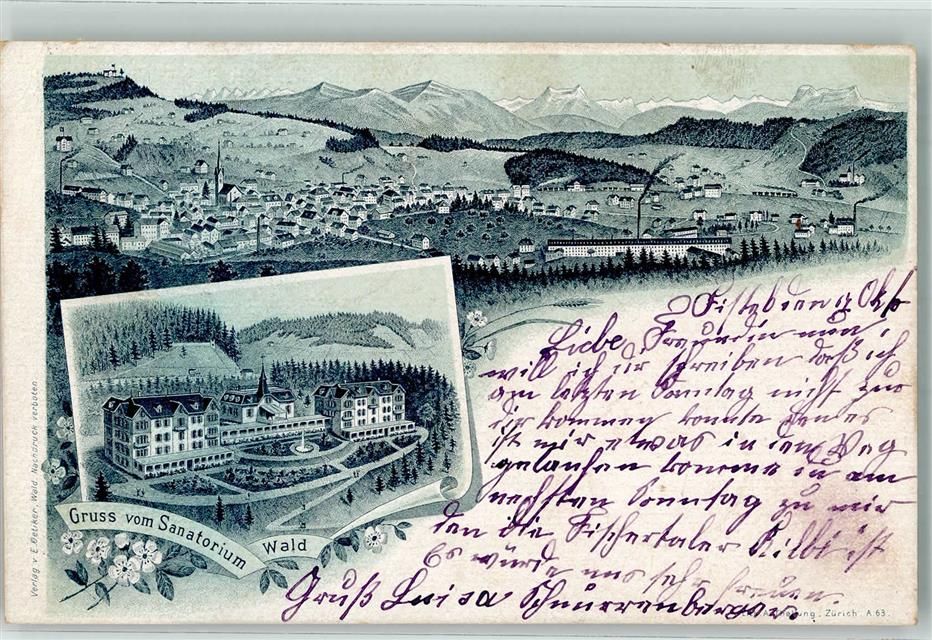 Gruss vom Sanatorium Wald
Verlag v. E. Oetiker, Wald. Nachdruck verboten.
Zürich. A. 63.
den Okb
Liebe Freundin nun
will ich dir schreiben daß ich
am letzten Sonntag nicht zu
dir kommen konnte denn es
ist mir etwas in den Weg
gelaufen komme du am
nechsten Sonntag zu mir
den die Fischertaler Kilbi ist
Es würde uns sehr freuen.
Gruß Luisa Schnurrenberger